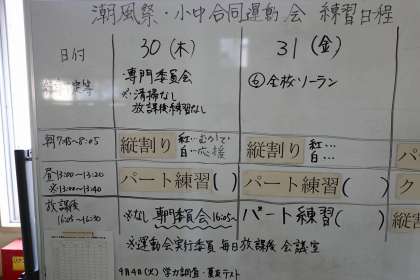 潮風祭・小中合同運動会 練習日程
日付 30(木) 31(金)
・専門委員会 ⑥全校ソーラン
※清掃なし
放課後練習なし
朝7:45~8:05 縦割り 紅… 縦割り 紅…
白…応援 白…
昼13:00~13:20 パート練習( ) パート練習( ) パ
※13:00~13:40
放課後 ※なし 専門委員会16:05~ パート練習( ) 縦
16:05~16:50
※運動会実行委員 毎日放課後 会議室
9月4日(火) 学力調査・夏夏テスト